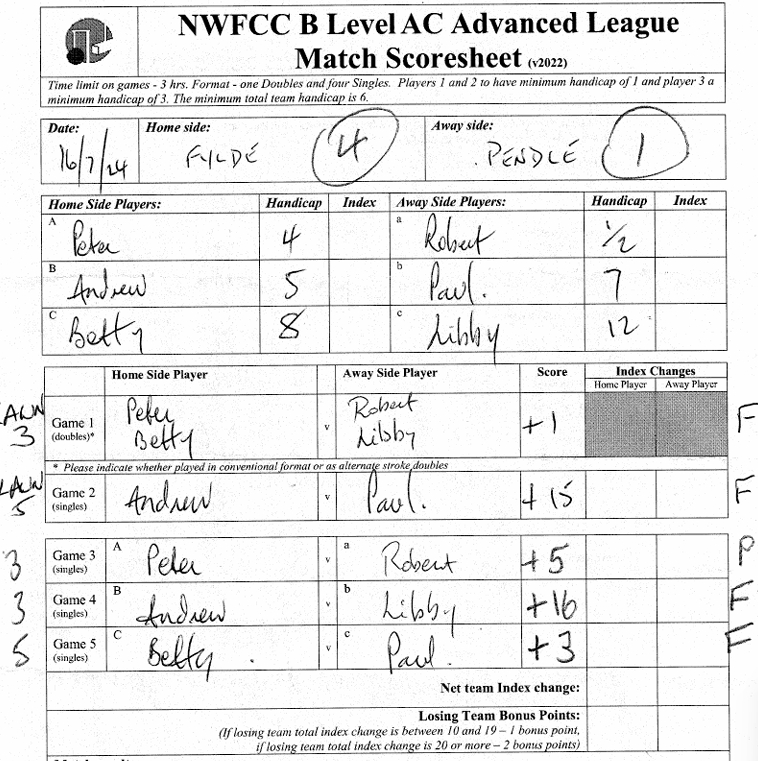 NWFCC B Level AC Advanced League
Match Scoresheet (v2022)
Time limit on games - 3 hrs. Format - one Doubles and four Singles. Players 1 and 2 to have minimum handicap of 1 and player 3 a
minimum handicap of 3. The minimum total team handicap is 6.
Date: Home side: Away side:
16/7/24 FYLDE 4 PENDLE 1
Home Side Players: Handicap Index Away Side Players: Handicap Index
A Peter 4 a Robert 1/2
B Andrew 5 b Paul. 7
C Betty 8 c Libby 12
Home Side Player Away Side Player Score Index Changes
Home Player Away Player
LAWN 3 Game 1 Peter v Robert +1 F
(doubles)* Betty Libby
* Please indicate whether played in conventional format or as alternate stroke doubles
LAWN 5 Game 2 Andrew v Paul. +15 F
(singles)
3 Game 3 A Peter v a Robert +5 P
(singles)
3 Game 4 B Andrew v b Libby +16 F
(singles)
5 Game 5 C Betty. v c Paul. +3 F
(singles)
Net team Index change:
Losing Team Bonus Points:
(If losing team total index change is between 10 and 19 – 1 bonus point,
if losing team total index change is 20 or more – 2 bonus points)